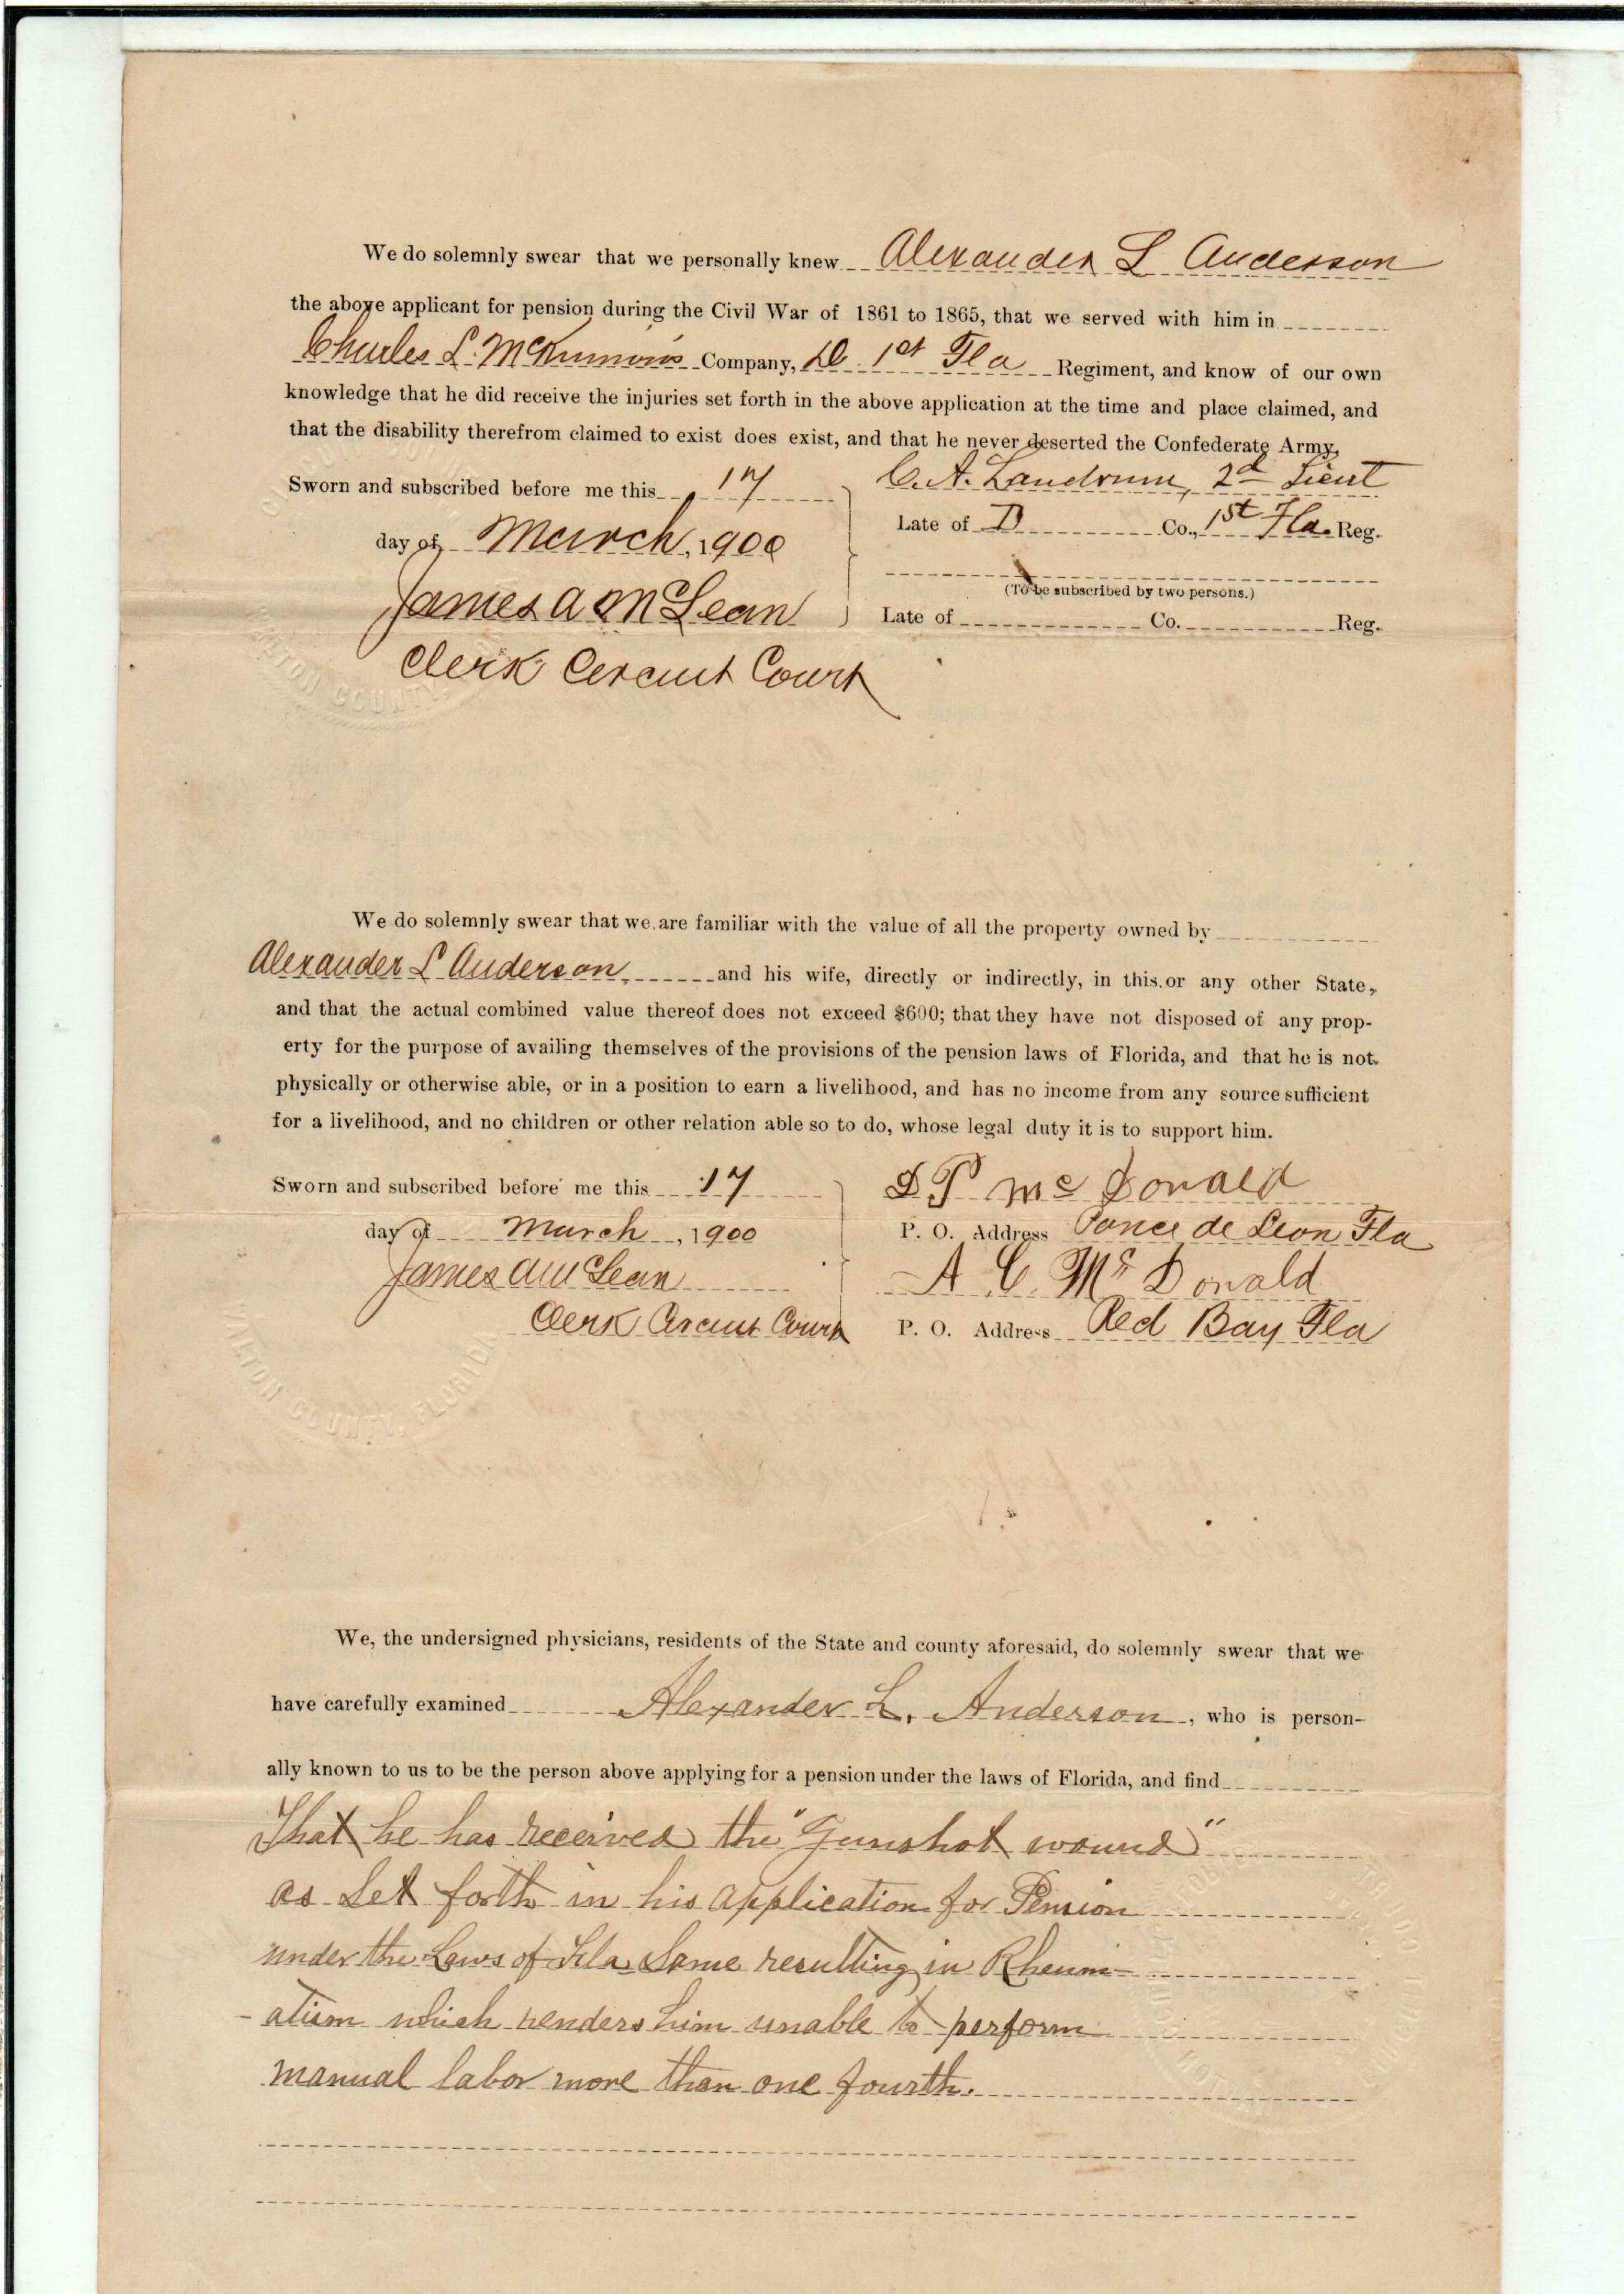 We do solemnly swear that we personally knew Alexander L Anderson
the above applicant for pension during the Civil War of 1861 to 1865, that we served with him in
Charles L. McKinnons Company, D. 1st Fla Regiment, and know of our own
knowledge that he did receive the injuries set forth in the above application at the time and place claimed, and
that the disability therefrom claimed to exist does exist, and that he never deserted the Confederate Army.
Sworn and subscribed before me this 17
C. A. Landrum, 2d Lieut
day of March, 1900
Late of D Co., 1st Fla. Reg.
James A McLean
(To be subscribed by two persons.)
Late of Co. Reg.
Clerk Circuit Court
WALTON COUNTY
We do solemnly swear that we are familiar with the value of all the property owned by
Alexander L Anderson, and his wife, directly or indirectly, in this or any other State,
and that the actual combined value thereof does not exceed $600; that they have not disposed of any prop-
erty for the purpose of availing themselves of the provisions of the pension laws of Florida, and that he is not
physically or otherwise able, or in a position to earn a livelihood, and has no income from any source sufficient
for a livelihood, and no children or other relation able so to do, whose legal duty it is to support him.
Sworn and subscribed before me this 17
D P McDonald
day of March, 1900
P. O. Address Ponce de Leon Fla
James A McLean
A. C. McDonald
Clerk Circuit Court
P. O. Address Red Bay Fla
WALTON COUNTY, FLORIDA
We, the undersigned physicians, residents of the State and county aforesaid, do solemnly swear that we
have carefully examined Alexander L. Anderson, who is person-
ally known to us to be the person above applying for a pension under the laws of Florida, and find
That he has received the "Gunshot wound"
as Set forth in his application for Pension
under the Laws of Fla Same resulting in Rheum-
-atism which renders him unable to perform
manual labor more than one fourth.